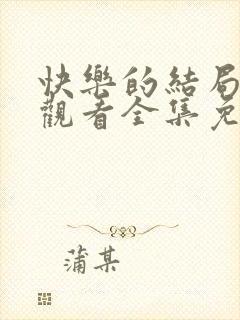 快樂的結局
觀看全集免
蒲某